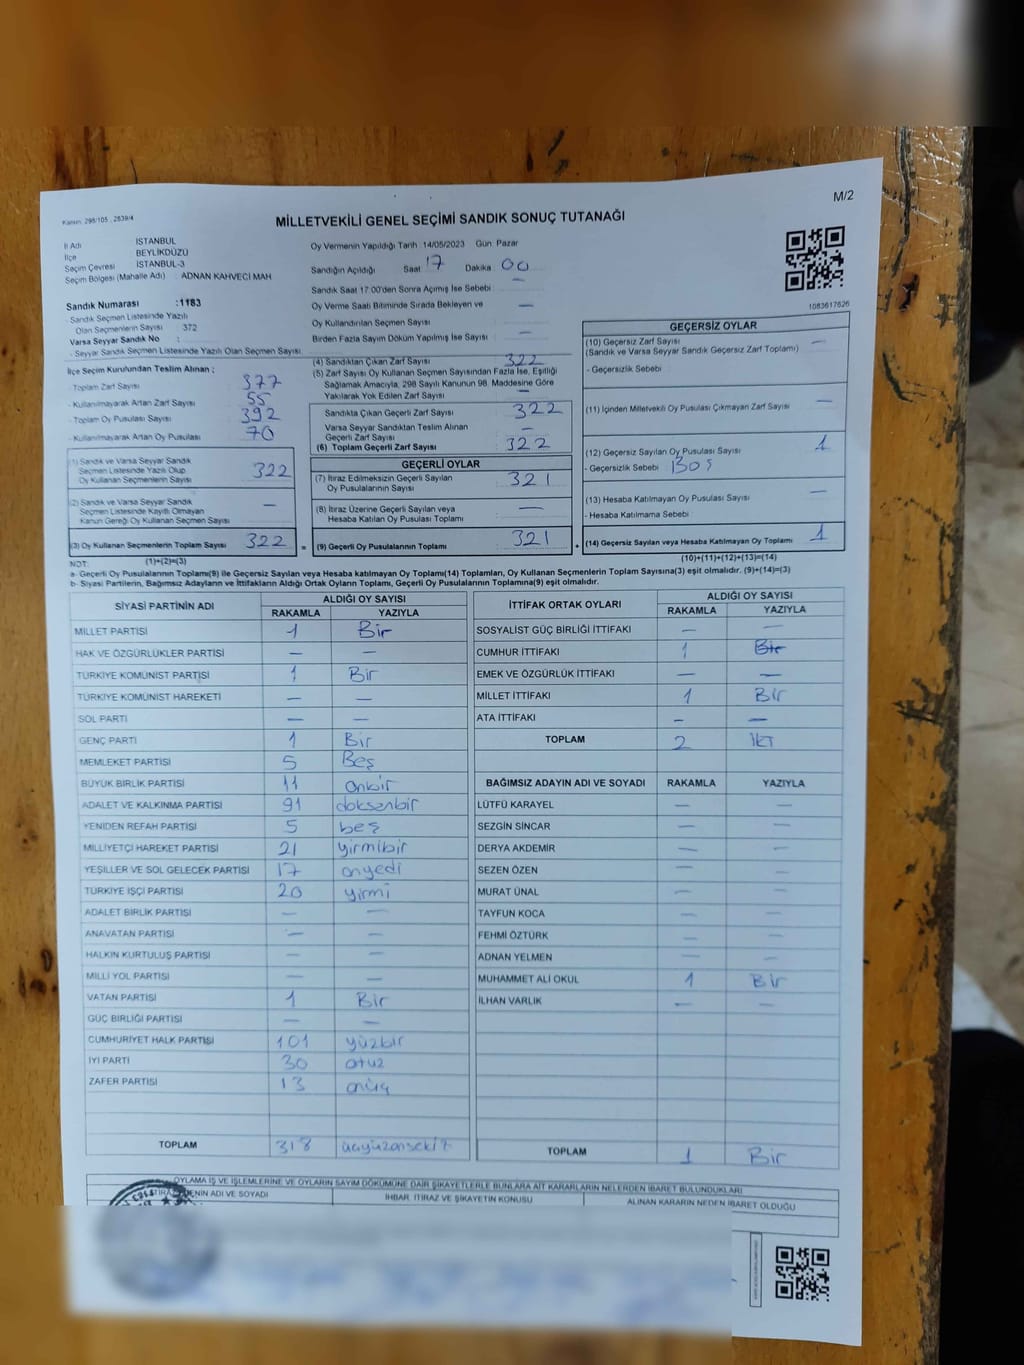 M/2
Kanun: 298/105 , 2839/4
MİLLETVEKİLİ GENEL SEÇİMİ SANDIK SONUÇ TUTANAĞI
İl Adı İSTANBUL
İlçe BEYLİKDÜZÜ
Seçim Çevresi İSTANBUL-3
Seçim Bölgesi (Mahalle Adı) : ADNAN KAHVECİ MAH
Sandık Numarası :1183
- Sandık Seçmen Listesinde Yazılı
Olan Seçmenlerin Sayısı 372
Varsa Seyyar Sandık No :
- Seyyar Sandık Seçmen Listesinde Yazılı Olan Seçmen Sayısı
İlçe Seçim Kurulundan Teslim Alınan ;
- Toplam Zarf Sayısı 377
- Kullanılmayarak Artan Zarf Sayısı 55
- Toplam Oy Pusulası Sayısı 392
- Kullanılmayarak Artan Oy Pusulası 70
(1) Sandık ve Varsa Seyyar Sandık
Seçmen Listesinde Yazılı Olup
Oy Kullanan Seçmenlerin Sayısı 322
(2) Sandık ve Varsa Seyyar Sandık
Seçmen Listesinde Kayıtlı Olmayan
Kanun Gereği Oy Kullanan Seçmen Sayısı —
(3) Oy Kullanan Seçmenlerin Toplam Sayısı 322 =
Oy Vermenin Yapıldığı Tarih 14/05/2023 Gün: Pazar
Sandığın Açıldığı Saat 17 Dakika 00
Sandık Saat 17:00'den Sonra Açılmış İse Sebebi —
Oy Verme Saati Bitiminde Sırada Bekleyen ve —
Oy Kullandırılan Seçmen Sayısı
Birden Fazla Sayım Döküm Yapılmış İse Sayısı —
(4) Sandıktan Çıkan Zarf Sayısı 322
(5) Zarf Sayısı Oy Kullanan Seçmen Sayısından Fazla İse, Eşitliği
Sağlamak Amacıyla, 298 Sayılı Kanunun 98. Maddesine Göre
Yakılarak Yok Edilen Zarf Sayısı —
Sandıkta Çıkan Geçerli Zarf Sayısı 322
Varsa Seyyar Sandıktan Teslim Alınan
Geçerli Zarf Sayısı —
(6) Toplam Geçerli Zarf Sayısı 322
GEÇERLİ OYLAR
(7) İtiraz Edilmeksizin Geçerli Sayılan
Oy Pusulalarının Sayısı 321
(8) İtiraz Üzerine Geçerli Sayılan veya
Hesaba Katılan Oy Pusulası Toplamı —
(9) Geçerli Oy Pusulalarının Toplamı 321 +
1083617626
GEÇERSİZ OYLAR
(10) Geçersiz Zarf Sayısı —
(Sandık ve Varsa Seyyar Sandık Geçersiz Zarf Toplamı)
- Geçersizlik Sebebi
(11) İçinden Milletvekili Oy Pusulası Çıkmayan Zarf Sayısı —
(12) Geçersiz Sayılan Oy Pusulası Sayısı 1
- Geçersizlik Sebebi BOŞ
(13) Hesaba Katılmayan Oy Pusulası Sayısı —
- Hesaba Katılmama Sebebi
(14) Geçersiz Sayılan veya Hesaba Katılmayan Oy Toplamı 1
NOT: (1)+(2)=(3) (10)+(11)+(12)+(13)=(14)
a- Geçerli Oy Pusulalarının Toplamı(9) ile Geçersiz Sayılan veya Hesaba katılmayan Oy Toplamı(14) Toplamları, Oy Kullanan Seçmenlerin Toplam Sayısına(3) eşit olmalıdır. (9)+(14)=(3)
b- Siyasi Partilerin, Bağımsız Adayların ve İttifakların Aldığı Ortak Oyların Toplamı, Geçerli Oy Pusulalarının Toplamına(9) eşit olmalıdır.
SİYASİ PARTİNİN ADI ALDIĞI OY SAYISI
RAKAMLA YAZIYLA
MİLLET PARTİSİ 1 Bir
HAK VE ÖZGÜRLÜKLER PARTİSİ — —
TÜRKİYE KOMÜNİST PARTİSİ 1 Bir
TÜRKİYE KOMÜNİST HAREKETİ — —
SOL PARTİ — —
GENÇ PARTİ 1 Bir
MEMLEKET PARTİSİ 5 Beş
BÜYÜK BİRLİK PARTİSİ 11 onbir
ADALET VE KALKINMA PARTİSİ 91 doksanbir
YENİDEN REFAH PARTİSİ 5 beş
MİLLİYETÇİ HAREKET PARTİSİ 21 yirmibir
YEŞİLLER VE SOL GELECEK PARTİSİ 17 onyedi
TÜRKİYE İŞÇİ PARTİSİ 20 yirmi
ADALET BİRLİK PARTİSİ — —
ANAVATAN PARTİSİ — —
HALKIN KURTULUŞ PARTİSİ — —
MİLLİ YOL PARTİSİ — —
VATAN PARTİSİ 1 Bir
GÜÇ BİRLİĞİ PARTİSİ — —
CUMHURİYET HALK PARTİSİ 101 yüzbir
İYİ PARTİ 30 otuz
ZAFER PARTİSİ 13 onüç
TOPLAM 318 üçyüzonsekiz
İTTİFAK ORTAK OYLARI ALDIĞI OY SAYISI
RAKAMLA YAZIYLA
SOSYALİST GÜÇ BİRLİĞİ İTTİFAKI — —
CUMHUR İTTİFAKI 1 Bir
EMEK VE ÖZGÜRLÜK İTTİFAKI — —
MİLLET İTTİFAKI 1 Bir
ATA İTTİFAKI — —
TOPLAM 2 İKİ
BAĞIMSIZ ADAYIN ADI VE SOYADI RAKAMLA YAZIYLA
LÜTFÜ KARAYEL — —
SEZGİN SİNCAR — —
DERYA AKDEMİR — —
SEZEN ÖZEN — —
MURAT ÜNAL — —
TAYFUN KOCA — —
FEHMİ ÖZTÜRK — —
ADNAN YELMEN — —
MUHAMMET ALİ OKUL 1 Bir
İLHAN VARLIK — —
TOPLAM 1 Bir
OYLAMA İŞ VE İŞLEMLERİNE VE OYLARIN SAYIM DÖKÜMÜNE DAİR ŞİKAYETLERLE BUNLARA AİT KARARLARIN NELERDEN İBARET BULUNDUKLARI
ADI VE SOYADI İHBAR, İTİRAZ VE ŞİKAYETİN KONUSU ALINAN KARARIN NEDEN İBARET OLDUĞU